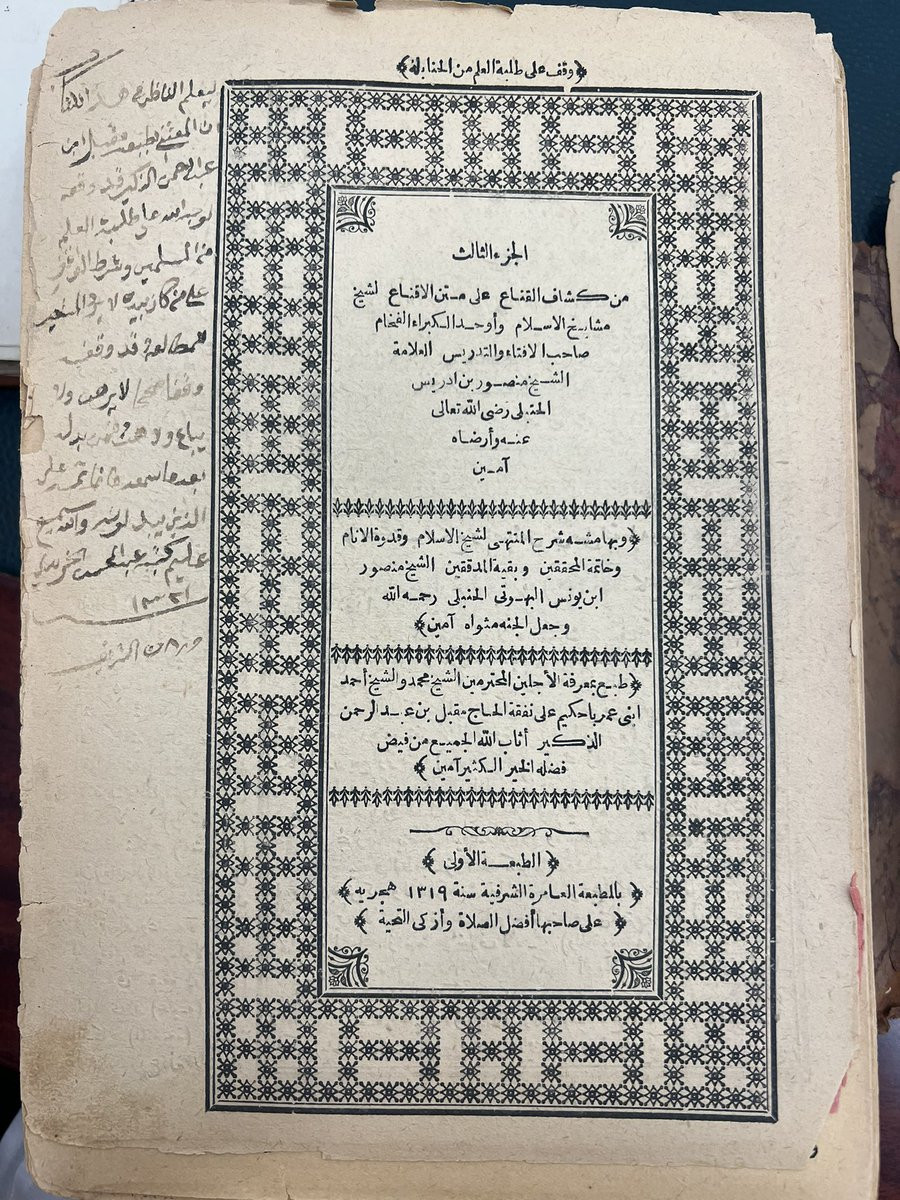 ﴿وقف على طلبة العلم من الحنابلة﴾
الجزء الثالث
من كشاف القناع على متن الاقناع لشيخ
مشايخ الاسلام وأوحد الكبراء الفخام
صاحب الافتاء والتدريس العلامة
الشيخ منصور بن ادريس
الحنبلى رضى الله تعالى
عنه وأرضاه
آمين
﴿وبهامشه شرح المنتهى لشيخ الاسلام وقدوة الانام
وخاتمة المحققين وبقية المدققين الشيخ منصور
ابن يونس البهوتى الحنبلى رحمه الله
وجعل الجنه مثواه آمين﴾
﴿طبع بمعرفة الأجلين المحترمين الشيخ محمد والشيخ أحمد
ابنى عمر باحكيم على نفقة الحاج مقبل بن عبد الرحمن
الذكير أثاب الله الجميع من فيض
فضله الخير الكثير آمين﴾
﴿الطبعة الأولى﴾
﴿بالمطبعة العامرة الشرفية سنة ١٣١٩ هجريه﴾
﴿على صاحبها أفضل الصلاة وأزكى التحية﴾
ليعلم الناظر
ان المعتنى بطبعه مقبل ابن
عبدالرحمن الذكير قد وقفه
لوجه الله على طلبة العلم
من المسلمين وشرط
على من كان بيده لا
مطالعة قد وقفه
وقفا صحيحا لا يرهن ولا
يباع ولا يوهب فمن بدله
بعدما سمعه فانما اثمه على
الذين يبدلونه والله سميع
عليم كتبه عبد المحسن
١٣٢١